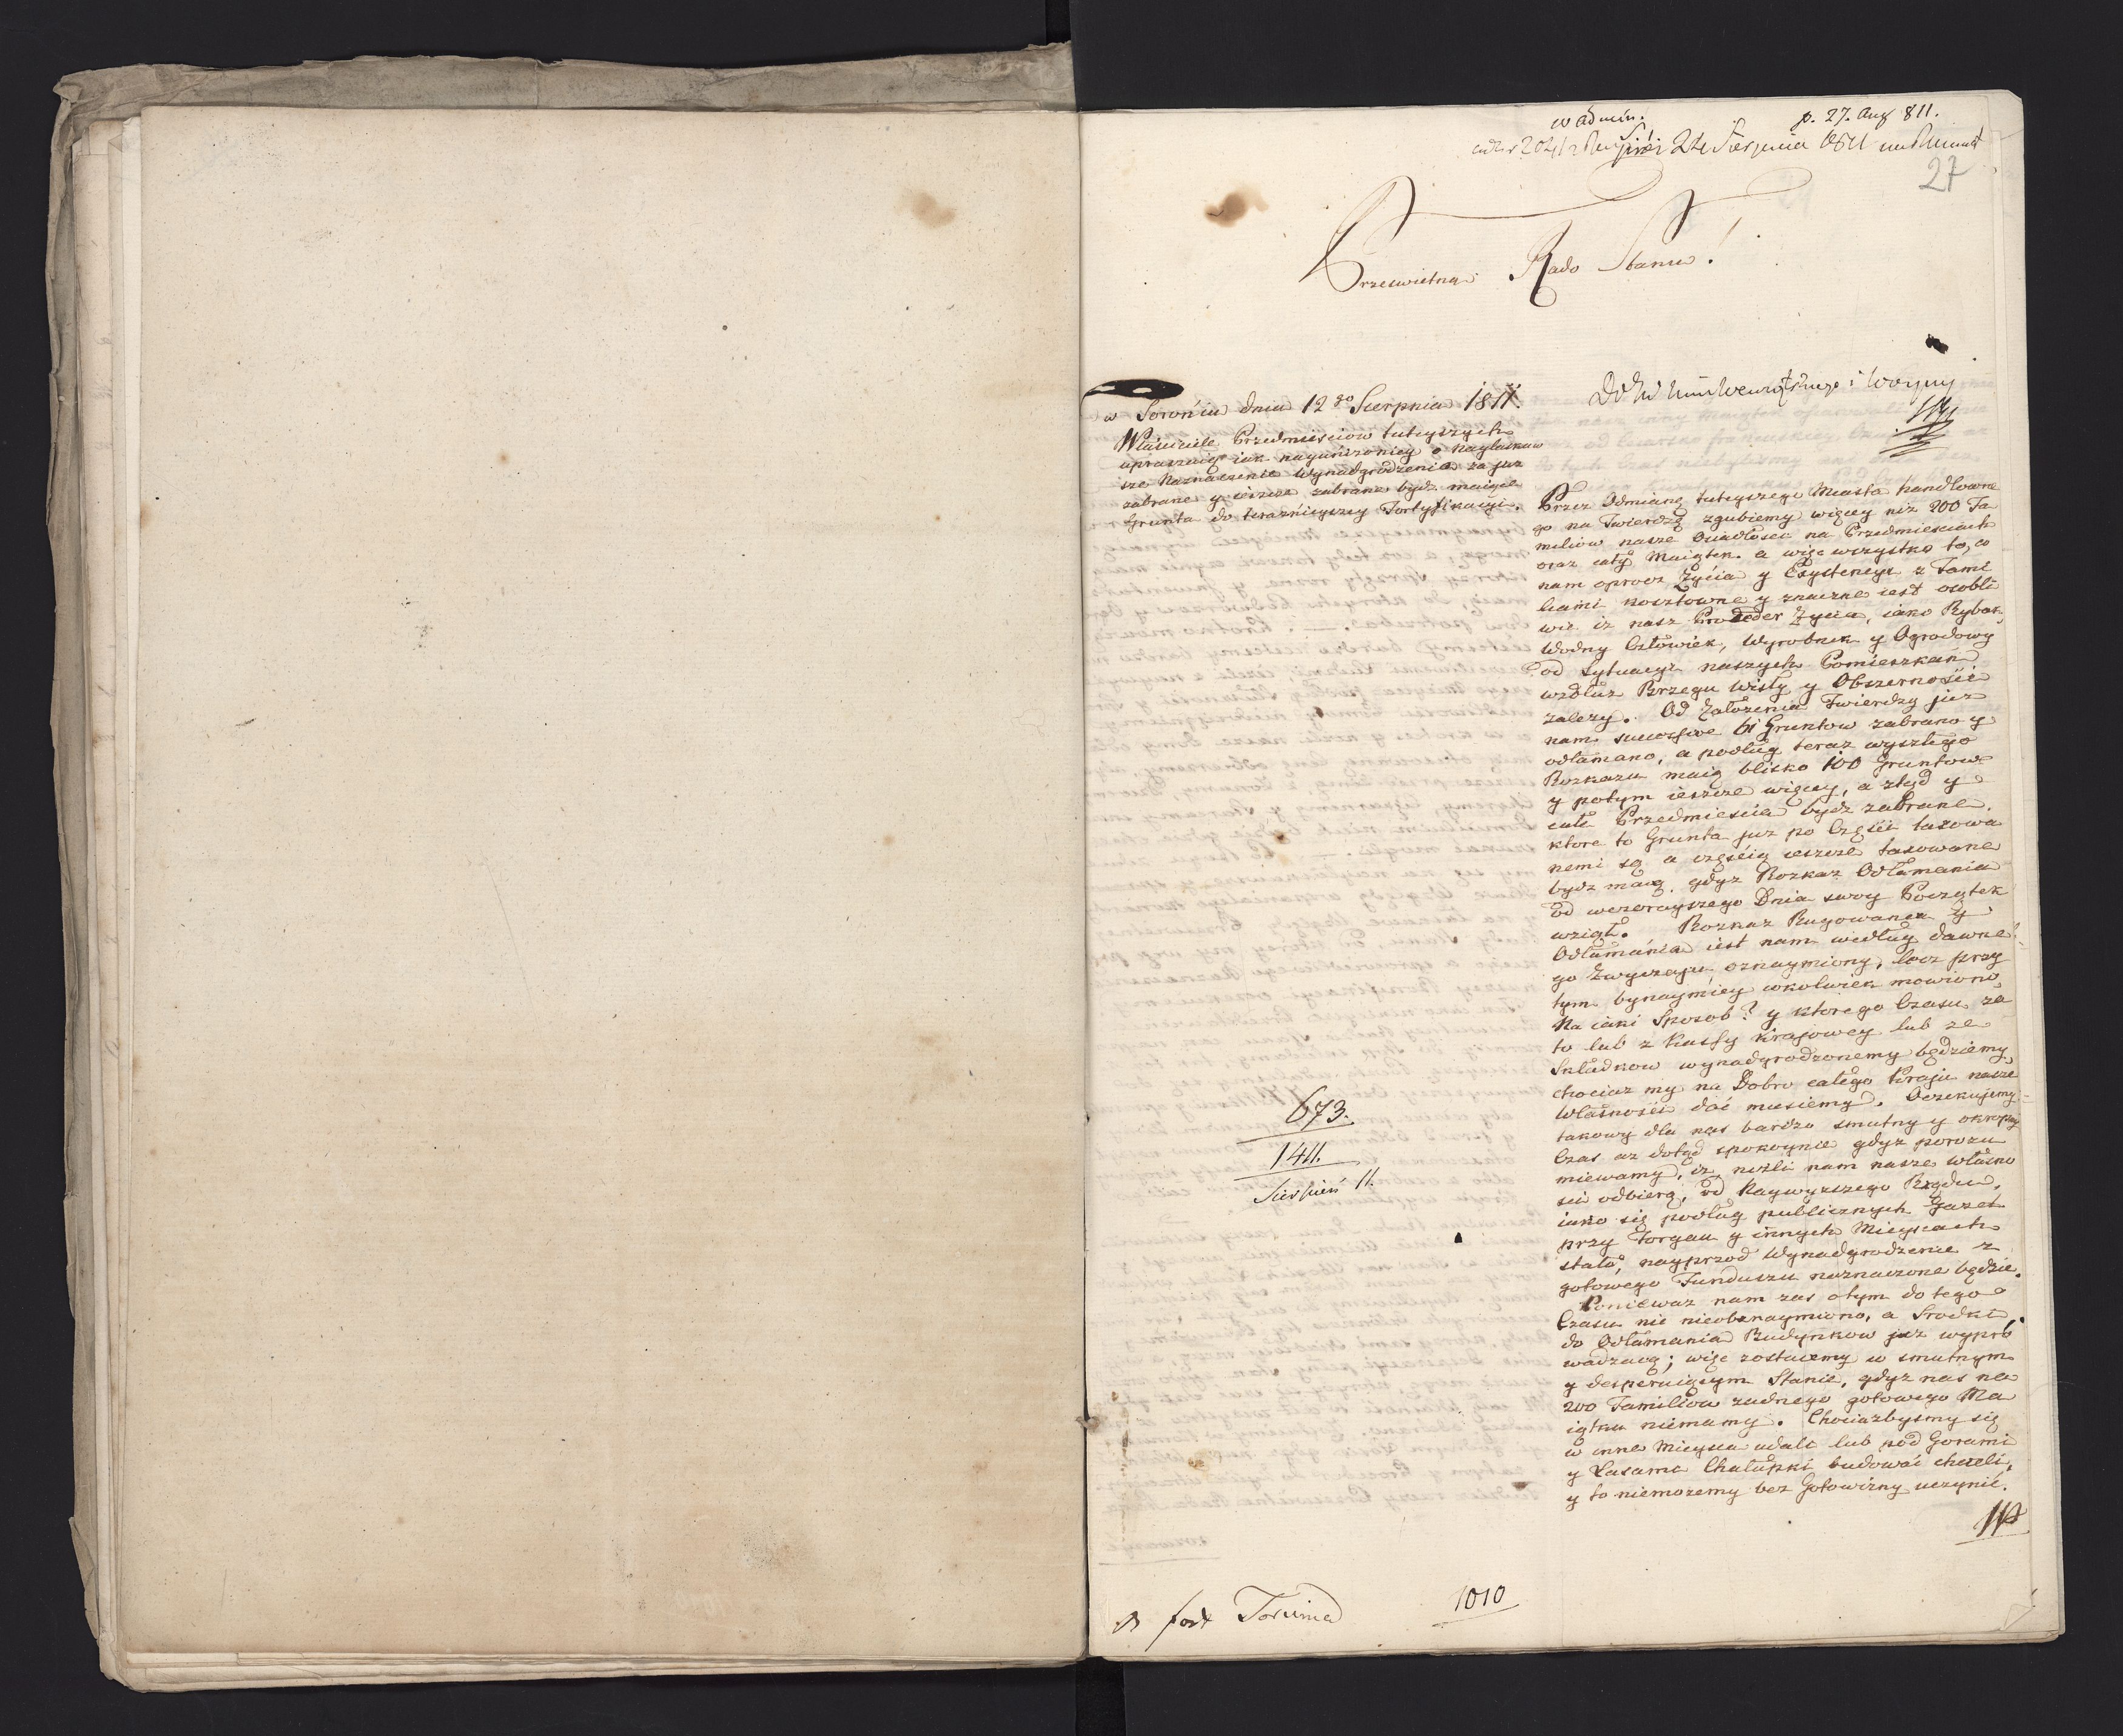 w admin.
p. 27. Aug 811.
24 Sierpnia 1811
27
Przeswietna Rado Stanu!
w Toroniu dnia 12go Sierpnia 1811.
Właściciele Przedmiesciow tuteyszych
upraszaią iak nayuniżoniey o Naylaskaw
sze Naznaczenie Wynadgrodzenia za juz
zabrane y ieszcze zabrane bydz maiące
Grunta do teraznieyszey Fortyfikacyi.
673.
1411.
Sierpień 11.
fort Torunia
1010
i Woyny
Przez Odmianę tuteyszego Miasta handlowne
go na Twierdzę zgubiemy więcey niz 200 Fa
miliow nasze Osiadłosci na Przedmiesciach
oraz cały Maiątek. a więc wszystko to, co
nam oprocz Zyćia y Exystencyi z Fami
liami kosztowne y znaczne iest osobli
wie iz nasz Proceder Zycia, iako Rybak,
Wodny Człowiek, Wyrobnik y Ogrodowy
od Sytuacyi naszych Pomieszkań
wzdłuz Brzegu Wisły y Obszernośći
zalezy. Od Załozenia Twierdzy juz
nam successive 61 Gruntow zabrano y
odłamano, a podług teraz wyszłego
Rozkazu maią blisko 100 Gruntow
y potym ieszcze więcey, a ztąd y
całe Przedmiescia bydz zabrane.
ktore to Grunta juz po Częśći taxowa
nemi są a częśćią ieszcze taxowane
bydz maią, gdyz Rozkaz Odłamania
od wczorayszego Dnia swoy Początek
wziął. Rozkaz Rugowania y
Odłamánia iest nam według dawne
go Zwyczaju oznaymiony, lecz przy
tym bynaymiey cokolwiek mowiono,
Na iaki Sposob? y ktorego Czasu za
to lub z Kassy Krajowey lub ze
Składkow wynadgrodzonemy będziemy,
chociaz my na Dobro całego Kraju nasze
Własnośći dać musiemy. Oczekujemy
takowy dla nas bardzo smutny y okropny
Czas az dotąd spokoynie gdyz porozu
miewamy, iz, nizli nam nasze własno
sci odbierą, od Naywyzszego Rządu,
iako się podług publicznych Gazet
przy Torgau y innych Mieyscach
stało, nayprzod Wynadgrodzenie z
gotowego Funduszu naznaczone będzie.
Poniewaz nam zas otym do tego
Czasu nic nieobznaymiono, a Srodki
do Odłamania Budynkow juz wypro
wadzaią; więc zostaiemy w smutnym
y desperuiącym Stanie, gdyz nas na
200 Familiow zadnego gotowego Ma
iątku niemamy. Chociazbysmy się
w inne Mieysca udali lub pod Gorami
y Lasami Chałupki budować chcieli,
y to niemozemy bez Gotowizny uczynić.